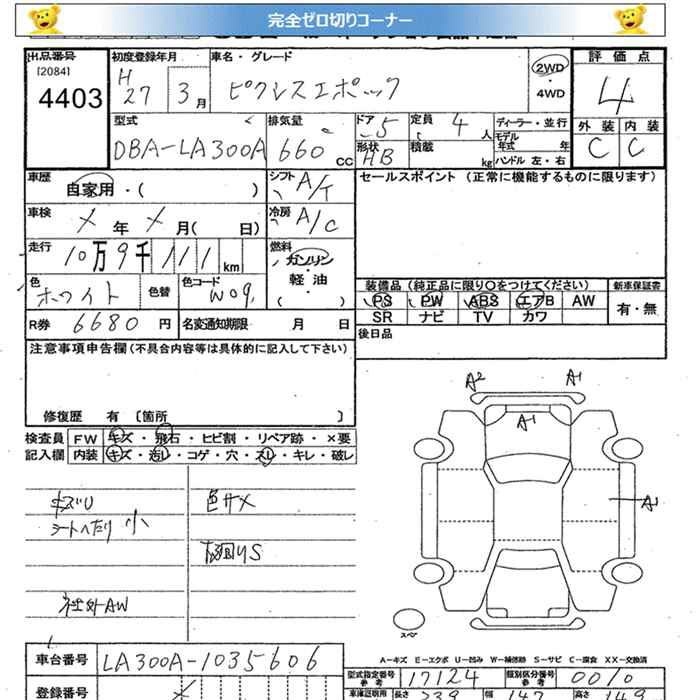 完全ゼロ切りコーナー
出品番号
[2084]
4403
初度登録年月
H27 3月
車名・グレード
ピクシスエポック
2WD
・
4WD
評価点
4
外装 内装
C C
型式
DBA-LA300A
排気量
660 cc
ドア 5
定員 4 人
形状 HB
積載 kg
ディーラー・並行
モデル年式 年
ハンドル 左・右
車歴
自家用・( )
シフト A/T
車検
X 年 X 月( 日)
冷房 A/C
走行
10万9千111km
燃料
ガソリン
・
軽・油
( )
色
ホワイト
色替
色コード
W09
R券 6680 円
名変通知期限 月 日
セールスポイント (正常に機能するものに限ります)
装備品(純正品に限り○をつけてください)
PS PW ABS エアB AW
SR ナビ TV カワ
新車保証書
有・無
後日品
注意事項申告欄(不具合内容等は具体的に記入して下さい)
修復歴 有 〔箇所 〕
検査員 FW キズ・飛石・ヒビ割・リペア跡・×要
記入欄 内装 キズ・汚レ・コゲ・穴・スレ・キレ・破レ
シートヘタリ 小
社外AW
色サメ
A2 A1
A1
A1
スペア
A-キズ E-エクボ U-凹み W-補修跡 S-サビ C-腐食 XX-交換済
車台番号 LA300A-1035606
登録番号
型式指定番号 参考 17124
類別区分番号 参考 0010
長さ 339 幅 147 高さ 149